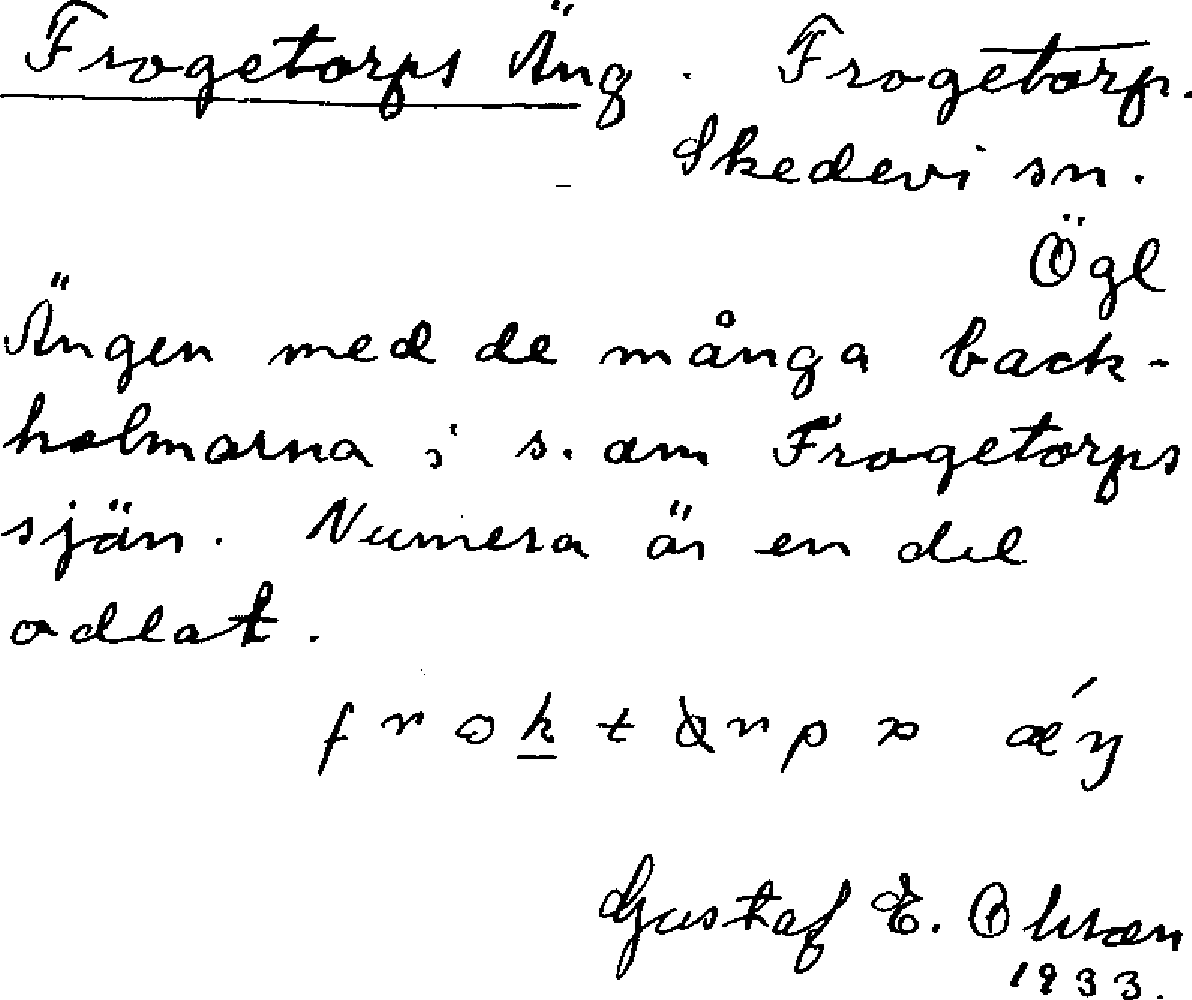 Frogetorps Äng. Frogetorp.
Skedevi sn.
Ögl
Ängen med de många back-
holmarna i s. om Frogetorps
sjön. Numera är en del
odlat.
Gustaf E. Olsson
1933.